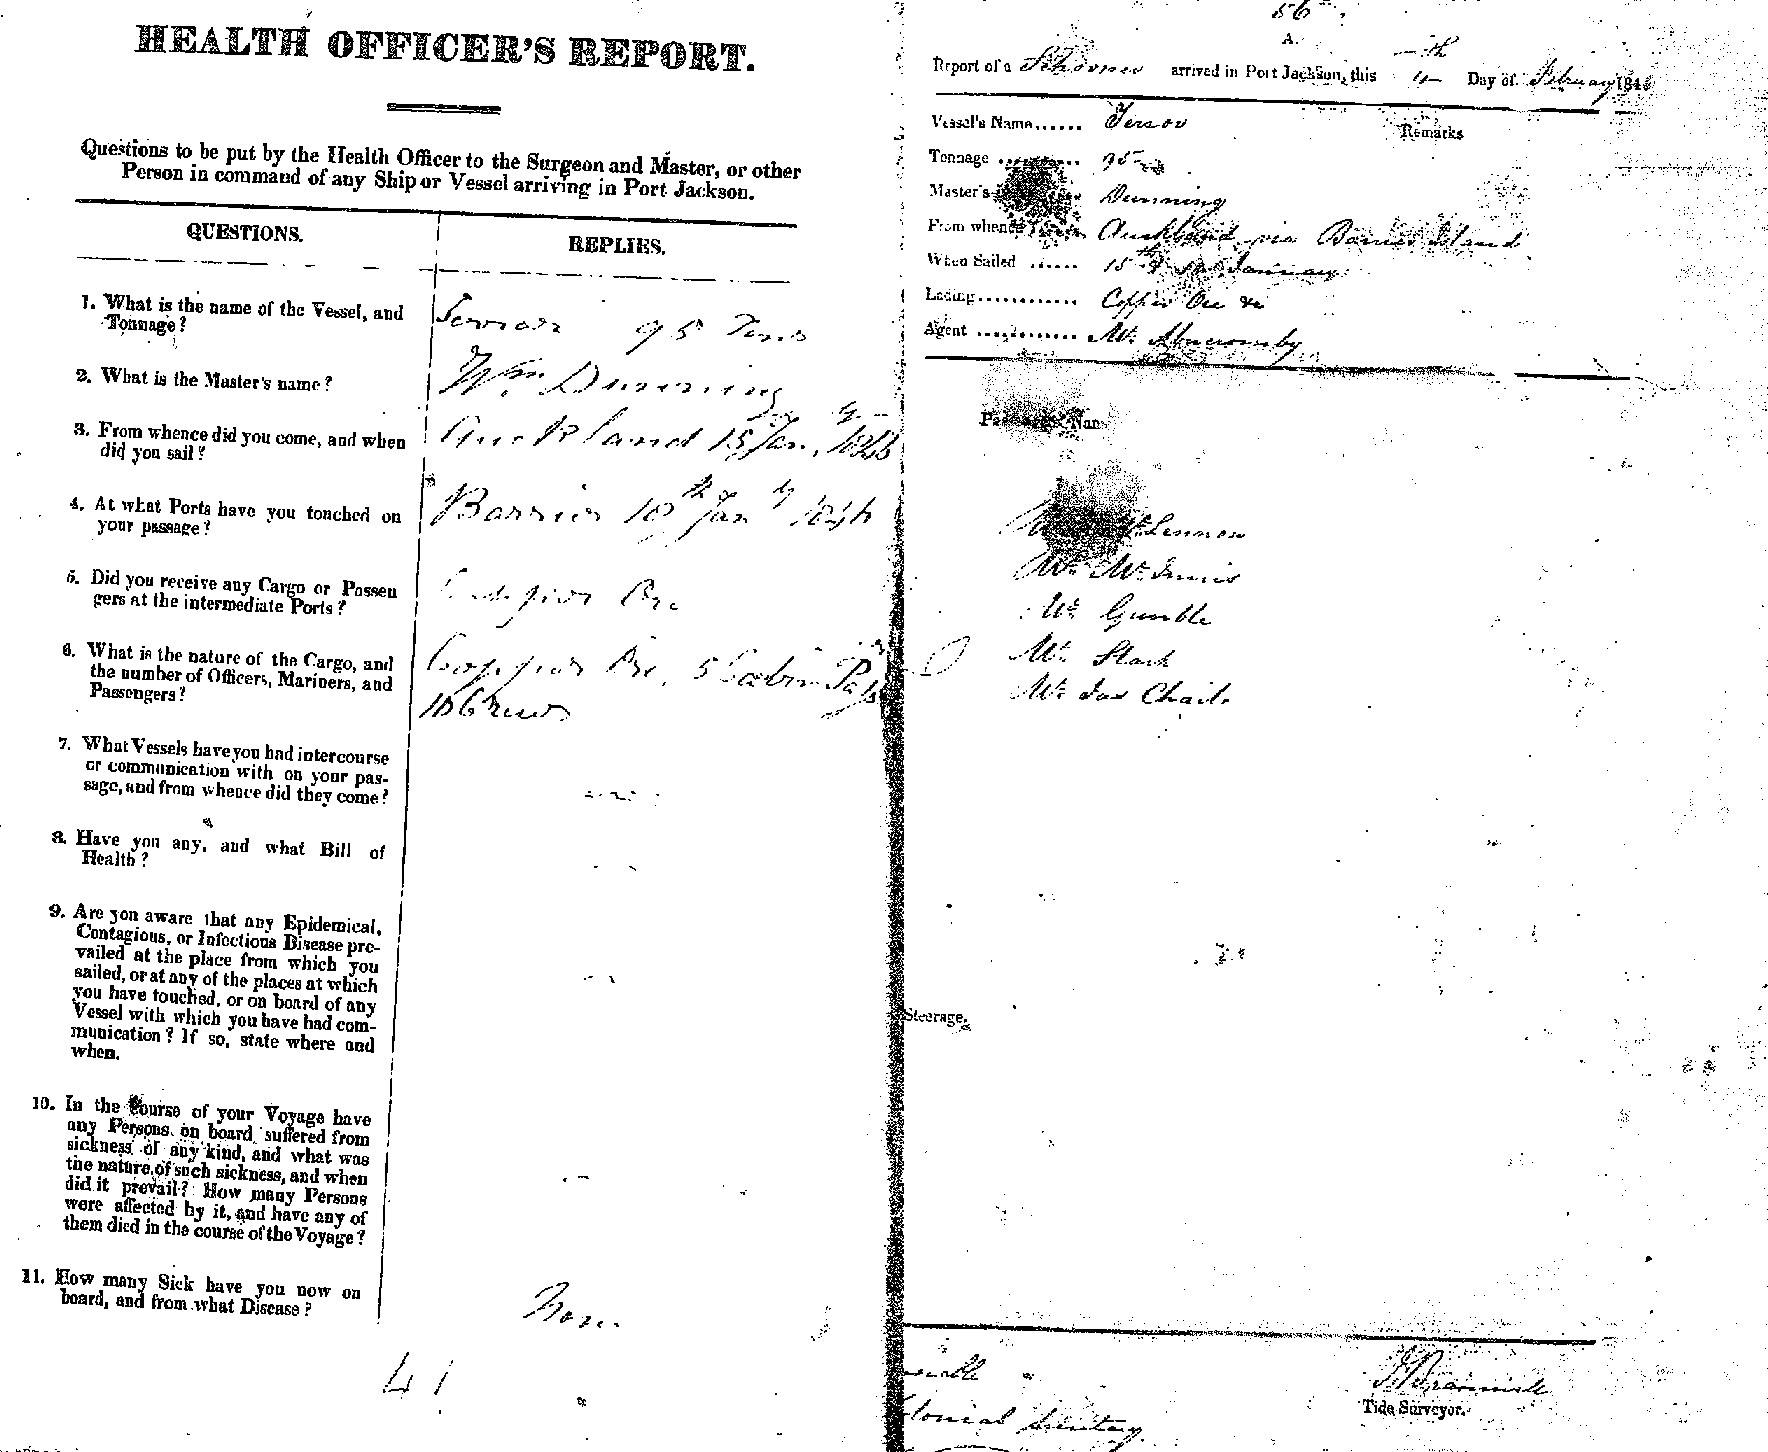 HEALTH OFFICER'S REPORT.
Questions to be put by the Health Officer to the Surgeon and Master, or other
Person in command of any Ship or Vessel arriving in Port Jackson.
QUESTIONS.
REPLIES.
1. What is the name of the Vessel, and
Tonnage?
95 Tons
2. What is the Master's name?
Wm. Dunning
3. From whence did you come, and when
did you sail?
Auckland 15 Jany. 1846
4. At what Ports have you touched on
your passage?
Barrier 18th Jany 1846
5. Did you receive any Cargo or Passen
gers at the intermediate Ports?
Copper Ore
6. What is the nature of the Cargo, and
the number of Officers, Mariners, and
Passengers?
Copper Ore, 5 Cabin
Crew
7. What Vessels have you had intercourse
or communication with on your pas-
sage, and from whence did they come?
8. Have you any, and what Bill of
Health?
9. Are you aware that any Epidemical,
Contagious, or Infectious Disease pre-
vailed at the place from which you
sailed, or at any of the places at which
you have touched, or on board of any
Vessel with which you have had com-
munication? If so, state where and
when.
10. In the Course of your Voyage have
any Persons on board suffered from
sickness of any kind, and what was
the nature of such sickness, and when
did it prevail? How many Persons
were affected by it, and have any of
them died in the course of the Voyage?
11. How many Sick have you now on
board, and from what Disease?
None
41
56
A.
Report of a Schooner arrived in Port Jackson, this 4th Day of February 184
Vessel's Name......
Remarks
Tonnage .......... 95
Master's Dunning
From whence Auckland via Barrier Island
When Sailed ...... 15th January
Lading............ Copper Ore &c
Agent ............ Mr. Abercromby
Lennon
Mr. McInnis
Mr. Gumble
Mr. Stark
Mr. Jas
Steerage.
onial Secretary
Tide Surveyor.